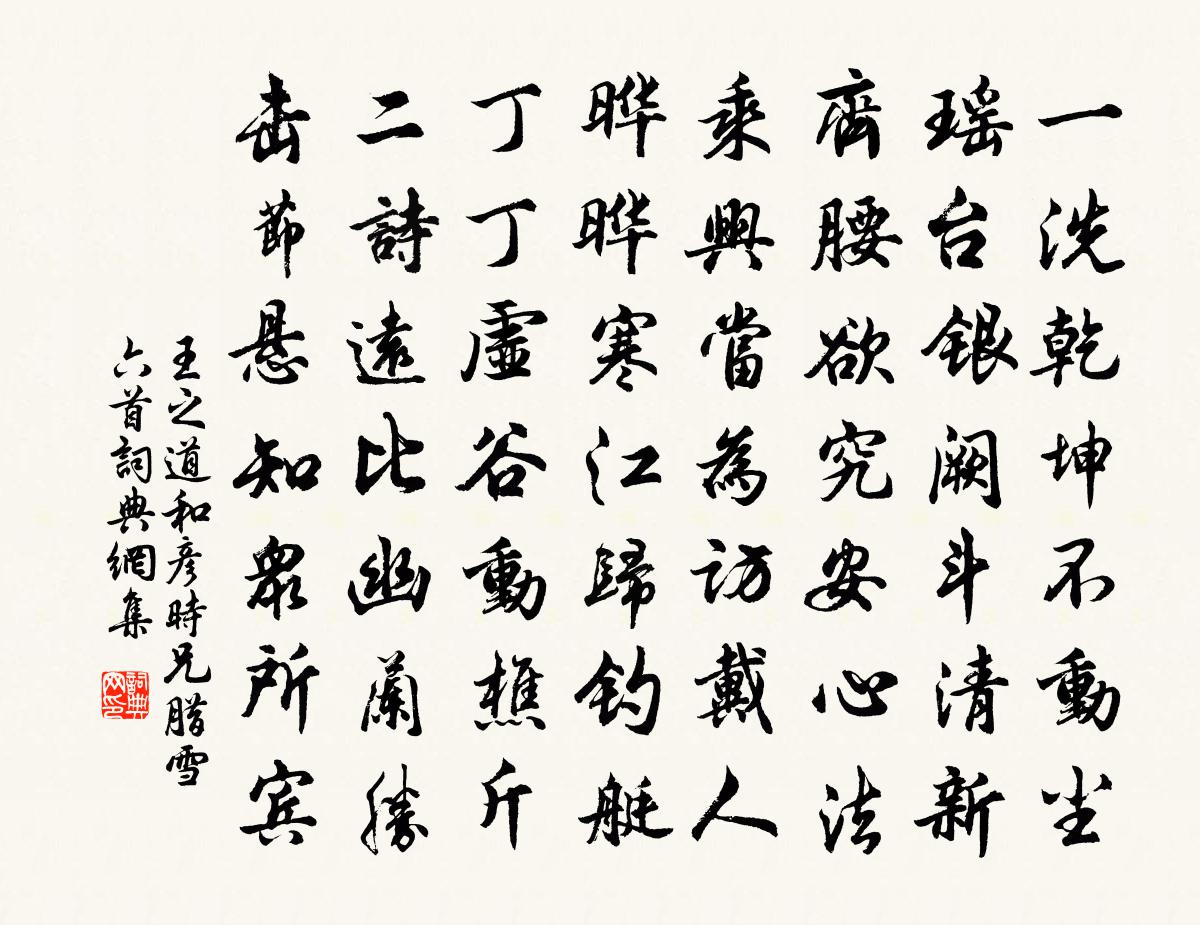 一洗乾坤不動尘
瑶台銀阙斗清新
齊腰欲究安心法
乘興當為訪戴人
晔晔寒江歸钓艇
丁丁虛谷動樵斤
二詩遠比幽蘭勝
击節悬知眾所宾
王之道和彦時兄腊雪
六首詞典網集
詞典
网印